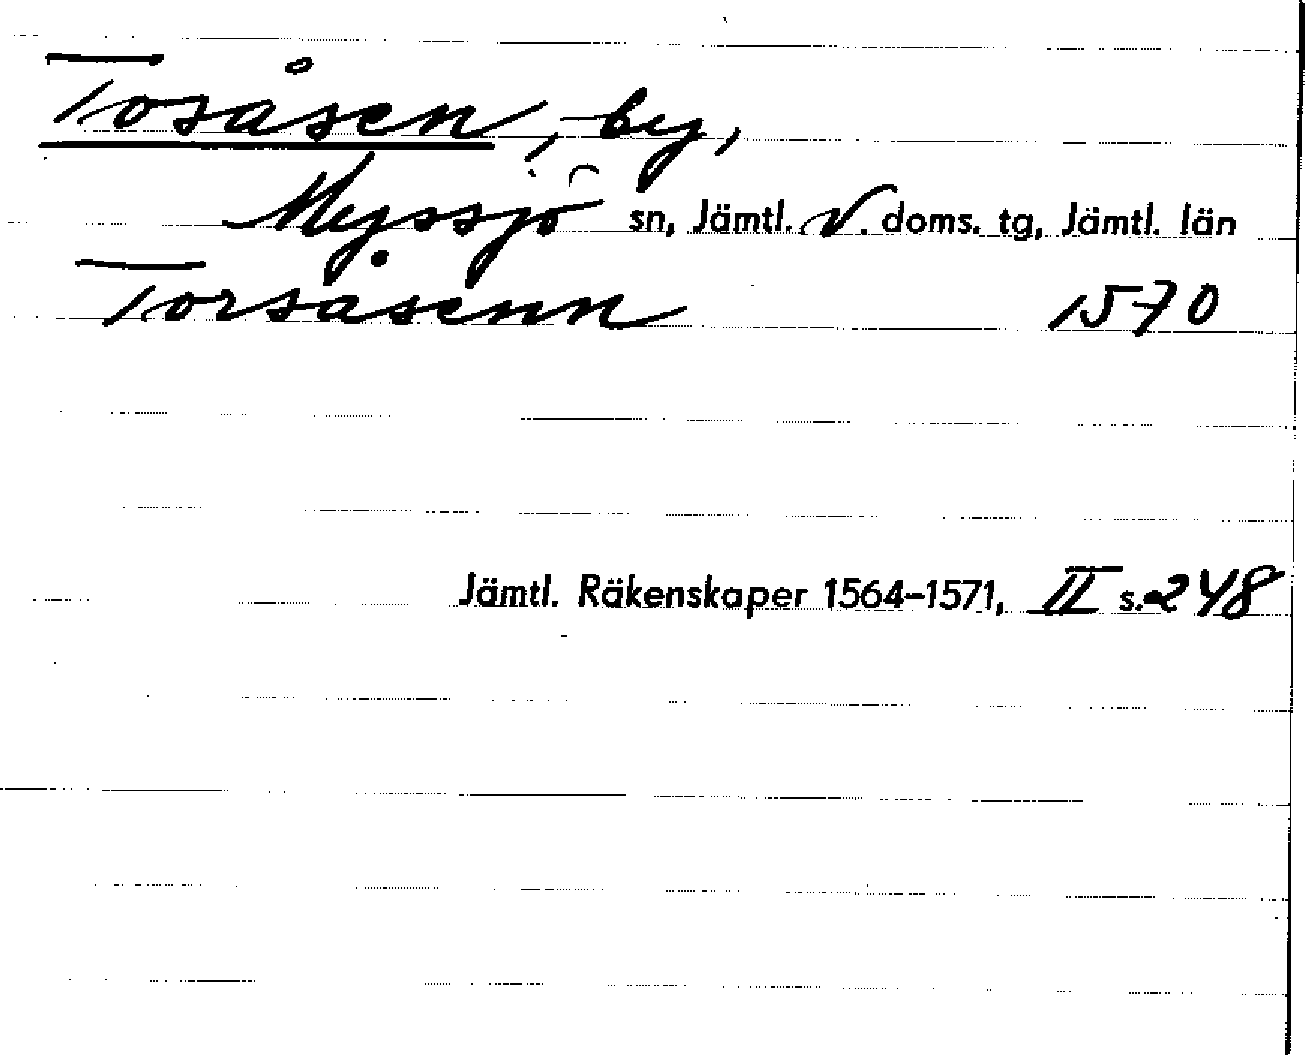 Tosåsen, by,
Myssjö sn, Jämtl. V. doms. tg, Jämtl. län
Torsåsenn 1570
Jämtl. Räkenskaper 1564-1571, II s. 248